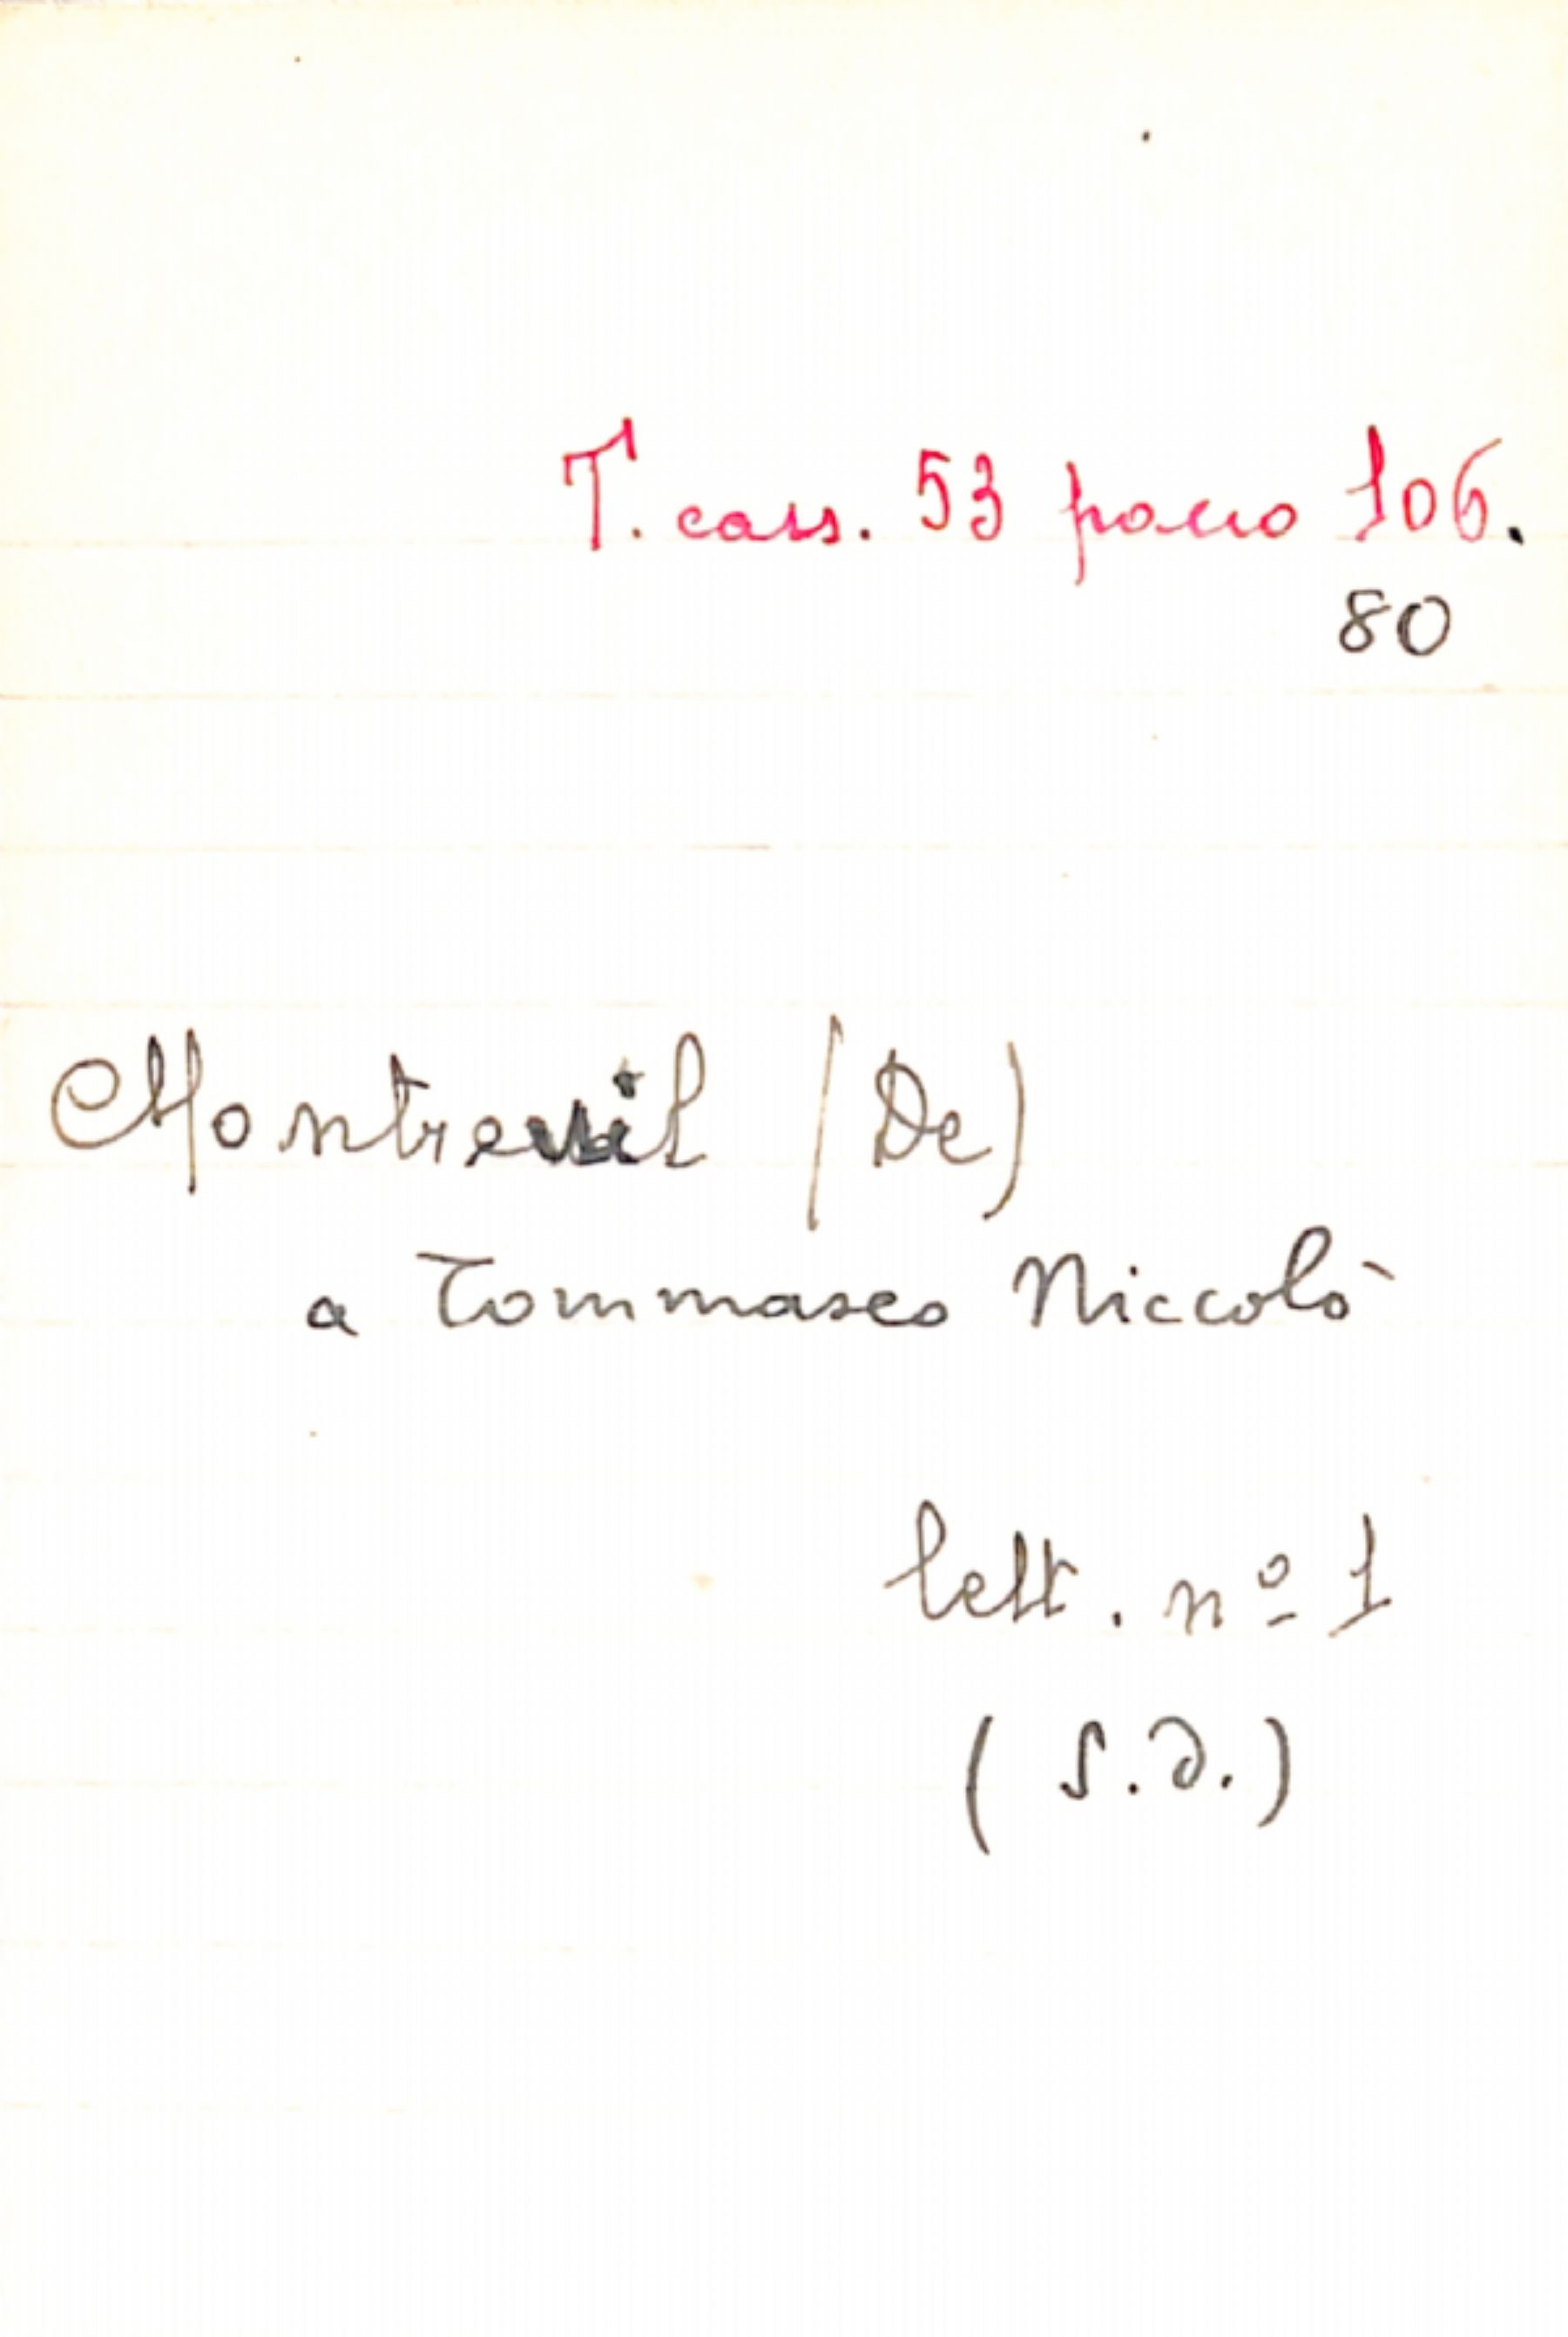 T. cass. 53 pacco 106.
80
Montreuil (De)
a Tommaseo Niccolò
lett. nº 1
(s.d.)